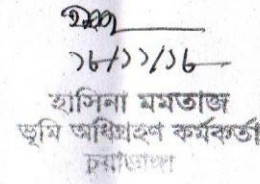 ১৮/১১/১৮
হাসিনা মমতাজ
ভূমি অধিগ্রহণ কর্মকর্তা